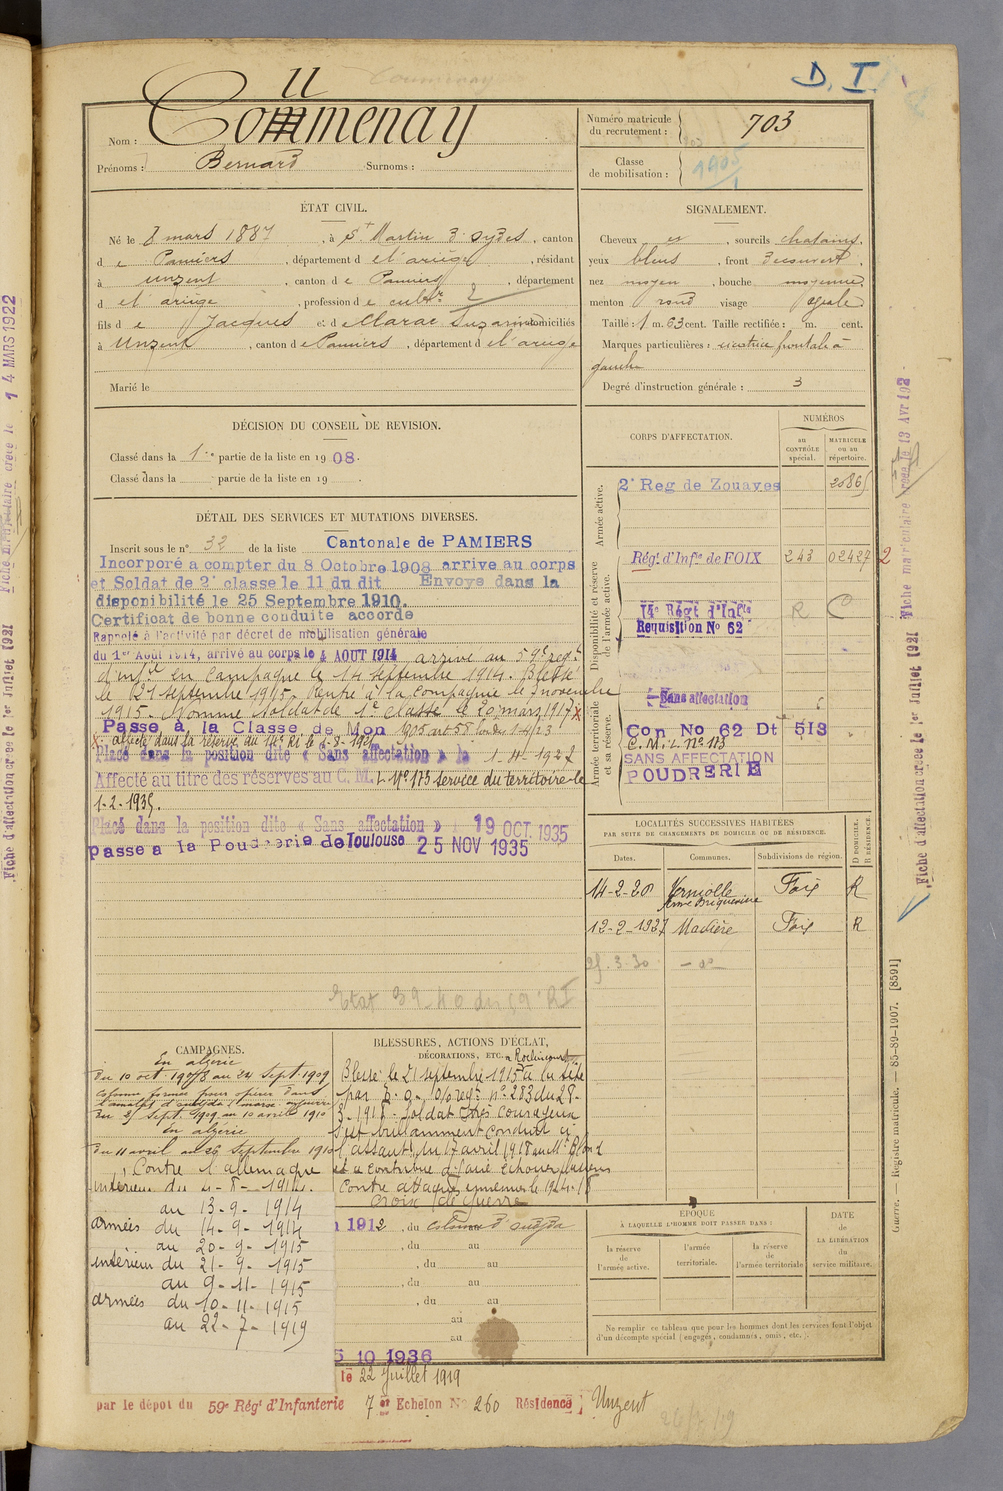 D. I.
Nom : Commenay
uu
Prénoms : Bernard Surnoms :
Numéro matricule
du recrutement : 703
Classe
de mobilisation : 1905
ÉTAT CIVIL.
Né le 8 mars 1887, à St Martin d'oydes, canton
d e Pamiers, département d el'ariège, résidant
à Unzent, canton d e Pamiers, département
d el'ariège, profession d e cultr 2
fils d e Jacques et d e Marac Suzanne domiciliés
à Unzent, canton d e Pamiers, département d el'ariège
Marié le
SIGNALEMENT.
Cheveux et, sourcils chatains,
yeux bleus, front découvert,
nez moyen, bouche moyenne,
menton rond visage ovale
Taille : 1 m. 63 cent. Taille rectifiée : m. cent.
Marques particulières : cicatrice frontale à
gauche
Degré d'instruction générale : 3
DÉCISION DU CONSEIL DE REVISION.
Classé dans la 1re partie de la liste en 1908.
Classé dans la partie de la liste en 19 .
DÉTAIL DES SERVICES ET MUTATIONS DIVERSES.
Inscrit sous le n° 32 de la liste Cantonale de PAMIERS
Incorporé a compter du 8 Octobre 1908 arrive au corps
et Soldat de 2e classe le 11 du dit Envoyé dans la
disponibilité le 25 Septembre 1910.
Certificat de bonne conduite accordé
Rappelé à l'activité par décret de mobilisation générale
du 1er Août 1914, arrivé au corps le 4 AOUT 1914 arrivé au 59e regt
d'infie en campagne le 14 septembre 1914. Blessé
le 21 septembre 1915. Rentré à la compagnie le 9 novembre
1915. Nommé soldat de 1e classe le 20 mars 1917 x
Passé à la Classe de Mon 1905 art 58 loi du 1-4/23
x affecté dans la réserve au 14e RI le
Placé dans la position dite « Sans affectation » le 1-4-1927
Affecté au titre des réserves au C. M. L N° 173 service du territoire le
1-2-1935.
Placé dans la position dite « Sans affectation » 19 OCT. 1935
passe a la Poudrerie de Toulouse 25 NOV 1935
Etat 39-40 du 59e RI
CORPS D'AFFECTATION.
NUMÉROS
au CONTRÔLE spécial.
MATRICULE ou au répertoire.
Armée active.
2e Reg de Zouaves 2086
Disponibilité et réserve de l'armée active.
Régt d'Infie de FOIX 243 02427 2
14e Régt d'Infie R
Requisition N° 62
Armée territoriale et sa réserve.
Sans affectation
Con No 62 Dt 513
C. M. L. N° 173
SANS AFFECTATION
POUDRERIE
LOCALITÉS SUCCESSIVES HABITÉES
PAR SUITE DE CHANGEMENTS DE DOMICILE OU DE RÉSIDENCE.
D DOMICILE. R RÉSIDENCE.
Dates. Communes. Subdivisions de région.
14-2-20 Verniolle Foix R
12-2-1927 Madière Foix R
25.3.30 - do -
CAMPAGNES.
En algérie
du 10 oct. 1908 au 24 Sept. 1909
du 25 Sept. 1909 au 10 avril 1910
en algérie
du 11 avril au 25 Septembre 1910
Contre l'allemagne
intérieur du 4-8-1914.
au 13-9-1914
armées du 14-9-1914
au 20-9-1915
intérieur du 21-9-1915
au 9-11-1915
armées du 10-11-1915
au 22-7-1919
BLESSURES, ACTIONS D'ÉCLAT,
DÉCORATIONS, ETC. a Roclincourt
Blessé le 21 septembre 1915 à la tête
par E. o. Cité regt n° 283 du 28-
3-1918. Soldat très courageux
s'est brillamment conduit à
l'assaut du 17 avril 1918 au Mt Blond
et a contribué à faire échouer plusieurs
contre attaques ennemies le
Croix de Guerre
1912, du
, du au
, du au
, du au
au
au
5 10 1936
ÉPOQUE
À LAQUELLE L'HOMME DOIT PASSER DANS :
la réserve de l'armée active.
l'armée territoriale.
la réserve de l'armée territoriale
DATE DE LA LIBÉRATION du service militaire.
Ne remplir ce tableau que pour les hommes dont les services font l'objet
d'un décompte spécial (engagés, condamnés, omis, etc.).
le 22 Juillet 1919
par le dépot du 59e Régt d'Infanterie 7e Echelon No 260 Résidence Unzent
Guerre. — Registre matricule. — 85-89-1907. [8591]
Fiche d'affectation créée le 1er Juillet 1921 Fiche matriculaire créée le 13 Avr 192
Fiche d'affectation créée le 1er Juillet 1921 Fiche matriculaire créée le 14 MARS 1922